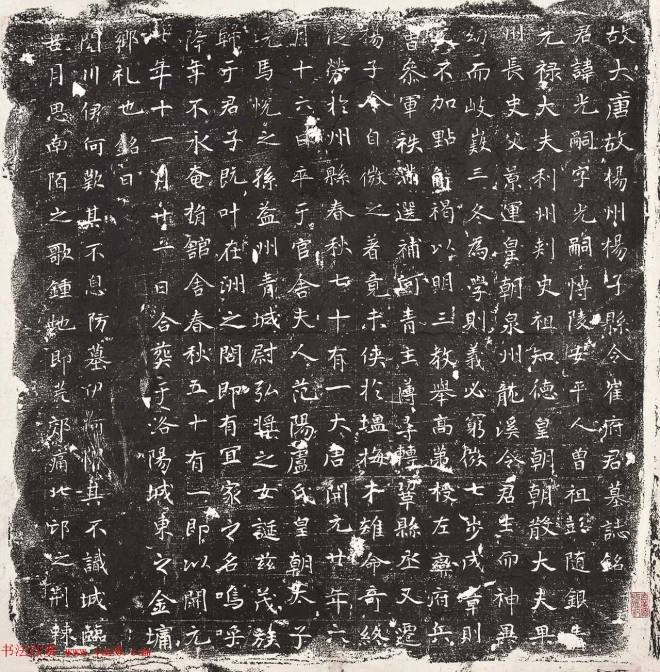 故大唐故楊州楊子縣令崔府君墓誌銘
君諱光嗣字光嗣博陵安平人曾祖彭随銀青
元禄大夫利州刺史祖知德皇朝朝散大夫果
州長史父景運皇朝泉州龍溪令君生而神異
幼而岐嶷三冬為學則義必窮微七步成章則
不加點解褐以明三教舉高第授左衛府兵
曹叅軍秩滿選補河青主簿子轉鞏縣丞又遷
楊子令自微之著竟未侠於塩梅才雄命奇終
從勞於州縣春秋七十有一大唐開元廿年六
月十六日卒于官舍夫人范陽盧氏皇朝太子
洗馬悅之孫益州青城尉弘獎之女誕茲茂族
歸于君子既叶在洲之閤即有宜家之名嗚呼
降年不永奄捐館舍春秋五十有一即以開元
廿年十一月廿二日合葬于洛陽城東之金墉
鄉礼也銘曰
閱川伊何歎其不息防墓伊何惧其不識城臨
芒月思南陌之歌鍾地即荒郊痛北邙之荆棘